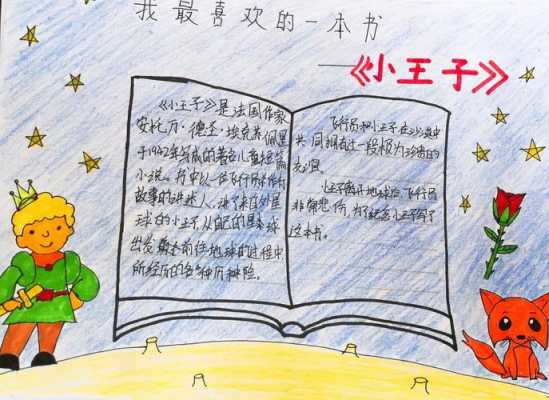 我最喜欢的一本书
——《小王子》
《小王子》是法国作家
安托万·德·埃克苏佩里
于1942年写成的著名儿童短篇
小说。书中以一位飞行员作为
故事的讲述人,讲了来自外星
球的小王子,从自己的星球
出发前往地球的过程中
所经历的各种历险。
飞行员和小王子在沙漠中
共同拥有过一段极为珍贵的
友谊。
小王子离开地球后,飞行员
非常悲伤,为了纪念小王子写了
这本书。